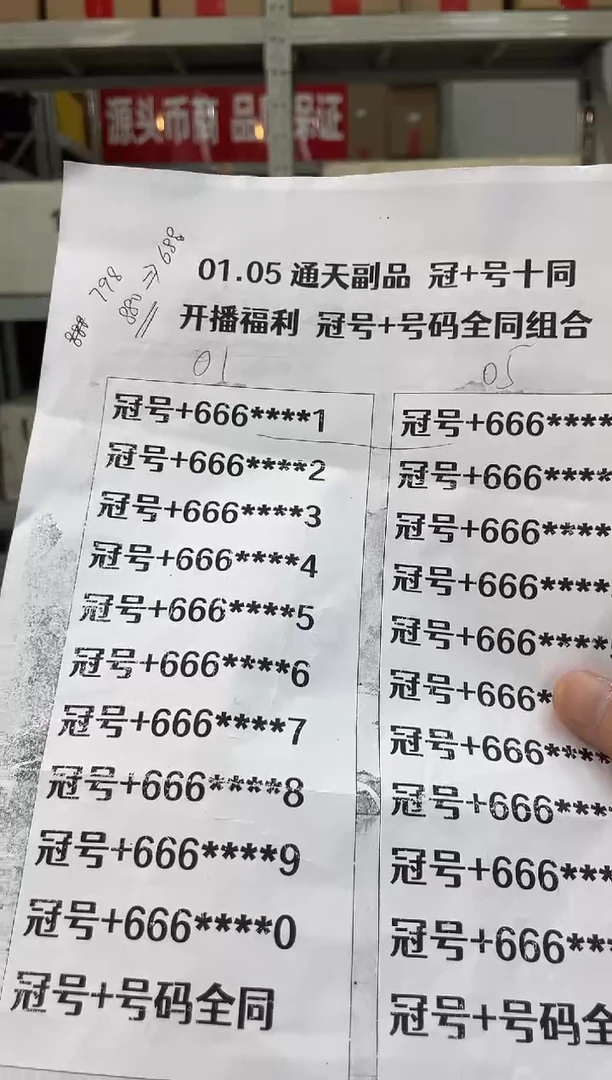 源头币商 品质保证
798
880⇒688
01.05 通天副品 冠+号十同
开播福利 冠号+号码全同组合
01
05
冠号+666****1
冠号+666****2
冠号+666****3
冠号+666****4
冠号+666****5
冠号+666****6
冠号+666****7
冠号+666****8
冠号+666****9
冠号+666****0
冠号+号码全同
冠号+666****
冠号+666****
冠号+666****
冠号+666****
冠号+666****
冠号+666*
冠号+666****
冠号+666***
冠号+666***
冠号+666***
冠号+号码全